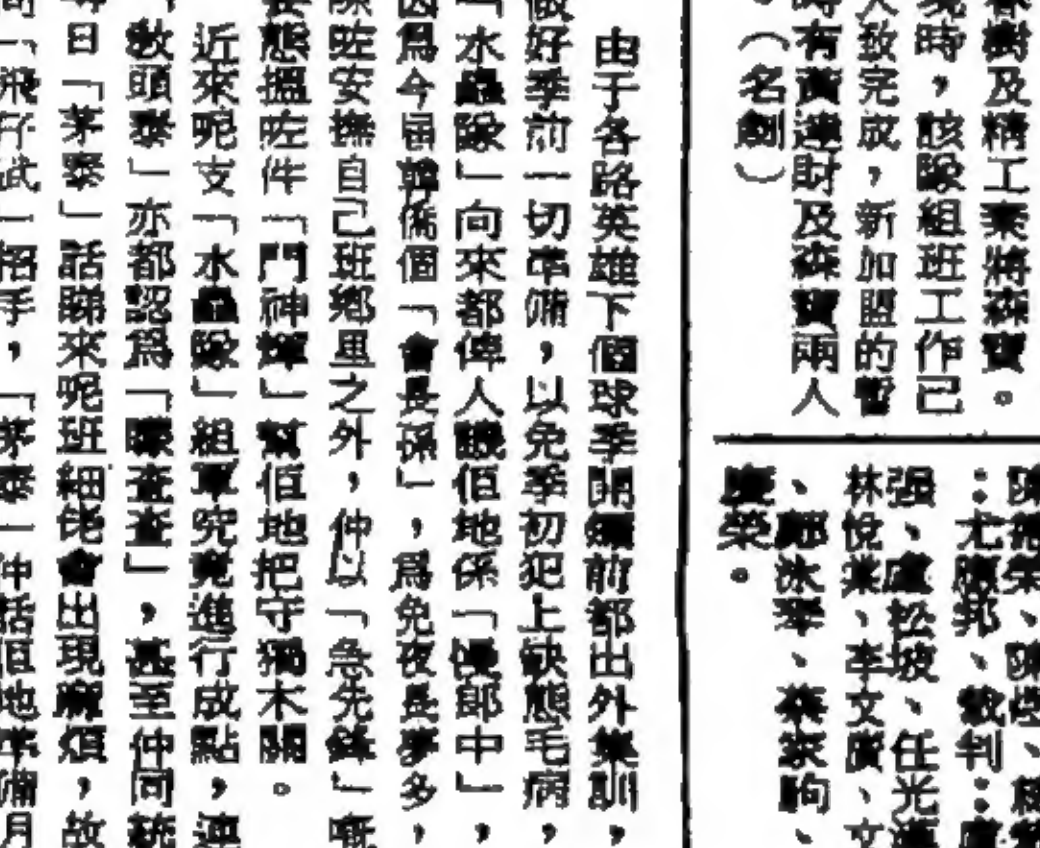 春樹及精工棄將森寶。
境時，該隊組班工作已
大致完成，新加盟的暫
時有黃達財及森寶兩人
。（名劍）
陳 榮、陳
：尤 邦，裁判：盧
强、盧松坡、任光
林悅業、李文廣、文
、鄭冰琴、蔡家駒、
慶榮。
由于各路英雄下個球季開鑼前都出外集訓，
做好季前一切準備，以免季初犯上缺態毛病，
「水蟲隊」向來都俾人譏佢地係「慢郎中」，
因爲今屆韓僑個「會長孫」，爲免夜長夢多，
除咗安撫自己班鄉里之外，仲以「急先鋒」嘅
姿態搵咗件「門神輝」幫佢地把守獨木關。
近來呢支「水蟲隊」組軍究竟進行成點，連
「教頭泰」亦都認爲「矇查查」，甚至仲同
日「茅泰」話睇來呢班細佬會出現麻煩，故
「飛仔武」招手，「茅泰」仲話佢地準備月